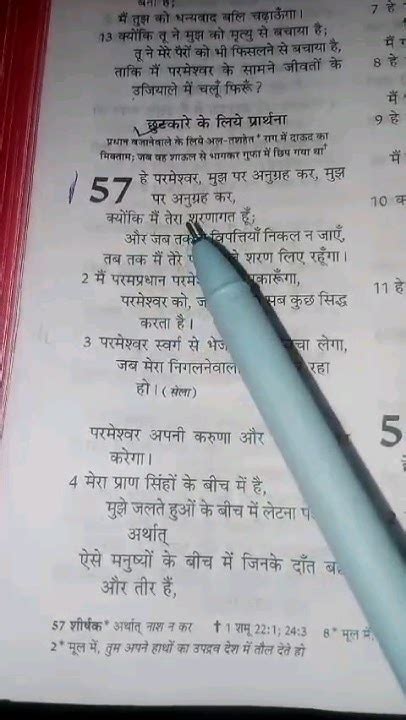 मैं तुझ को धन्यवाद बलि चढ़ाऊँगा।
13 क्योंकि तू ने मुझ को मृत्यु से बचाया है;
तू ने मेरे पैरों को भी फिसलने से बचाया है,
ताकि मैं परमेश्वर के सामने जीवतों के
उजियाले में चलूँ फिरूँ?
छुटकारे के लिये प्रार्थना
प्रधान बजानेवाले के लिये अल-तशहेत* राग में दाऊद का
मिक्ताम; जब वह शाऊल से भागकर गुफा में छिप गया था†
57 हे परमेश्वर, मुझ पर अनुग्रह कर, मुझ
पर अनुग्रह कर,
क्योंकि मैं तेरा शरणागत हूँ;
और जब तक विपत्तियाँ निकल न जाएँ,
तब तक मैं तेरे शरण लिए रहूँगा।
2 मैं परमप्रधान
परमेश्वर को, सब कुछ सिद्ध
करता है।
3 परमेश्वर स्वर्ग से लेगा,
जब मेरा रहा
हो। (सेला)
परमेश्वर अपनी करुणा और
करेगा।
4 मेरा प्राण सिंहों के बीच में है,
मुझे जलते हुओं के बीच में लेटना
अर्थात्
ऐसे मनुष्यों के बीच में जिनके दाँत
और तीर हैं,
57 शीर्षक* अर्थात् नाश न कर † 1 शमू 22:1; 24:3
2* मूल में, तुम अपने हाथों का उपद्रव देश में तौल देते हो
7 हे
मैं
8 हे
मैं
9 हे
10 क
11 हे
5
8* मूल में,